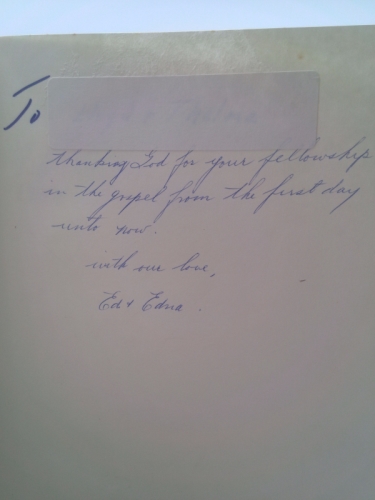 To
thanking God for your fellowship
in the gospel from the first day
unto now.
with our love,
Ed & Edna.